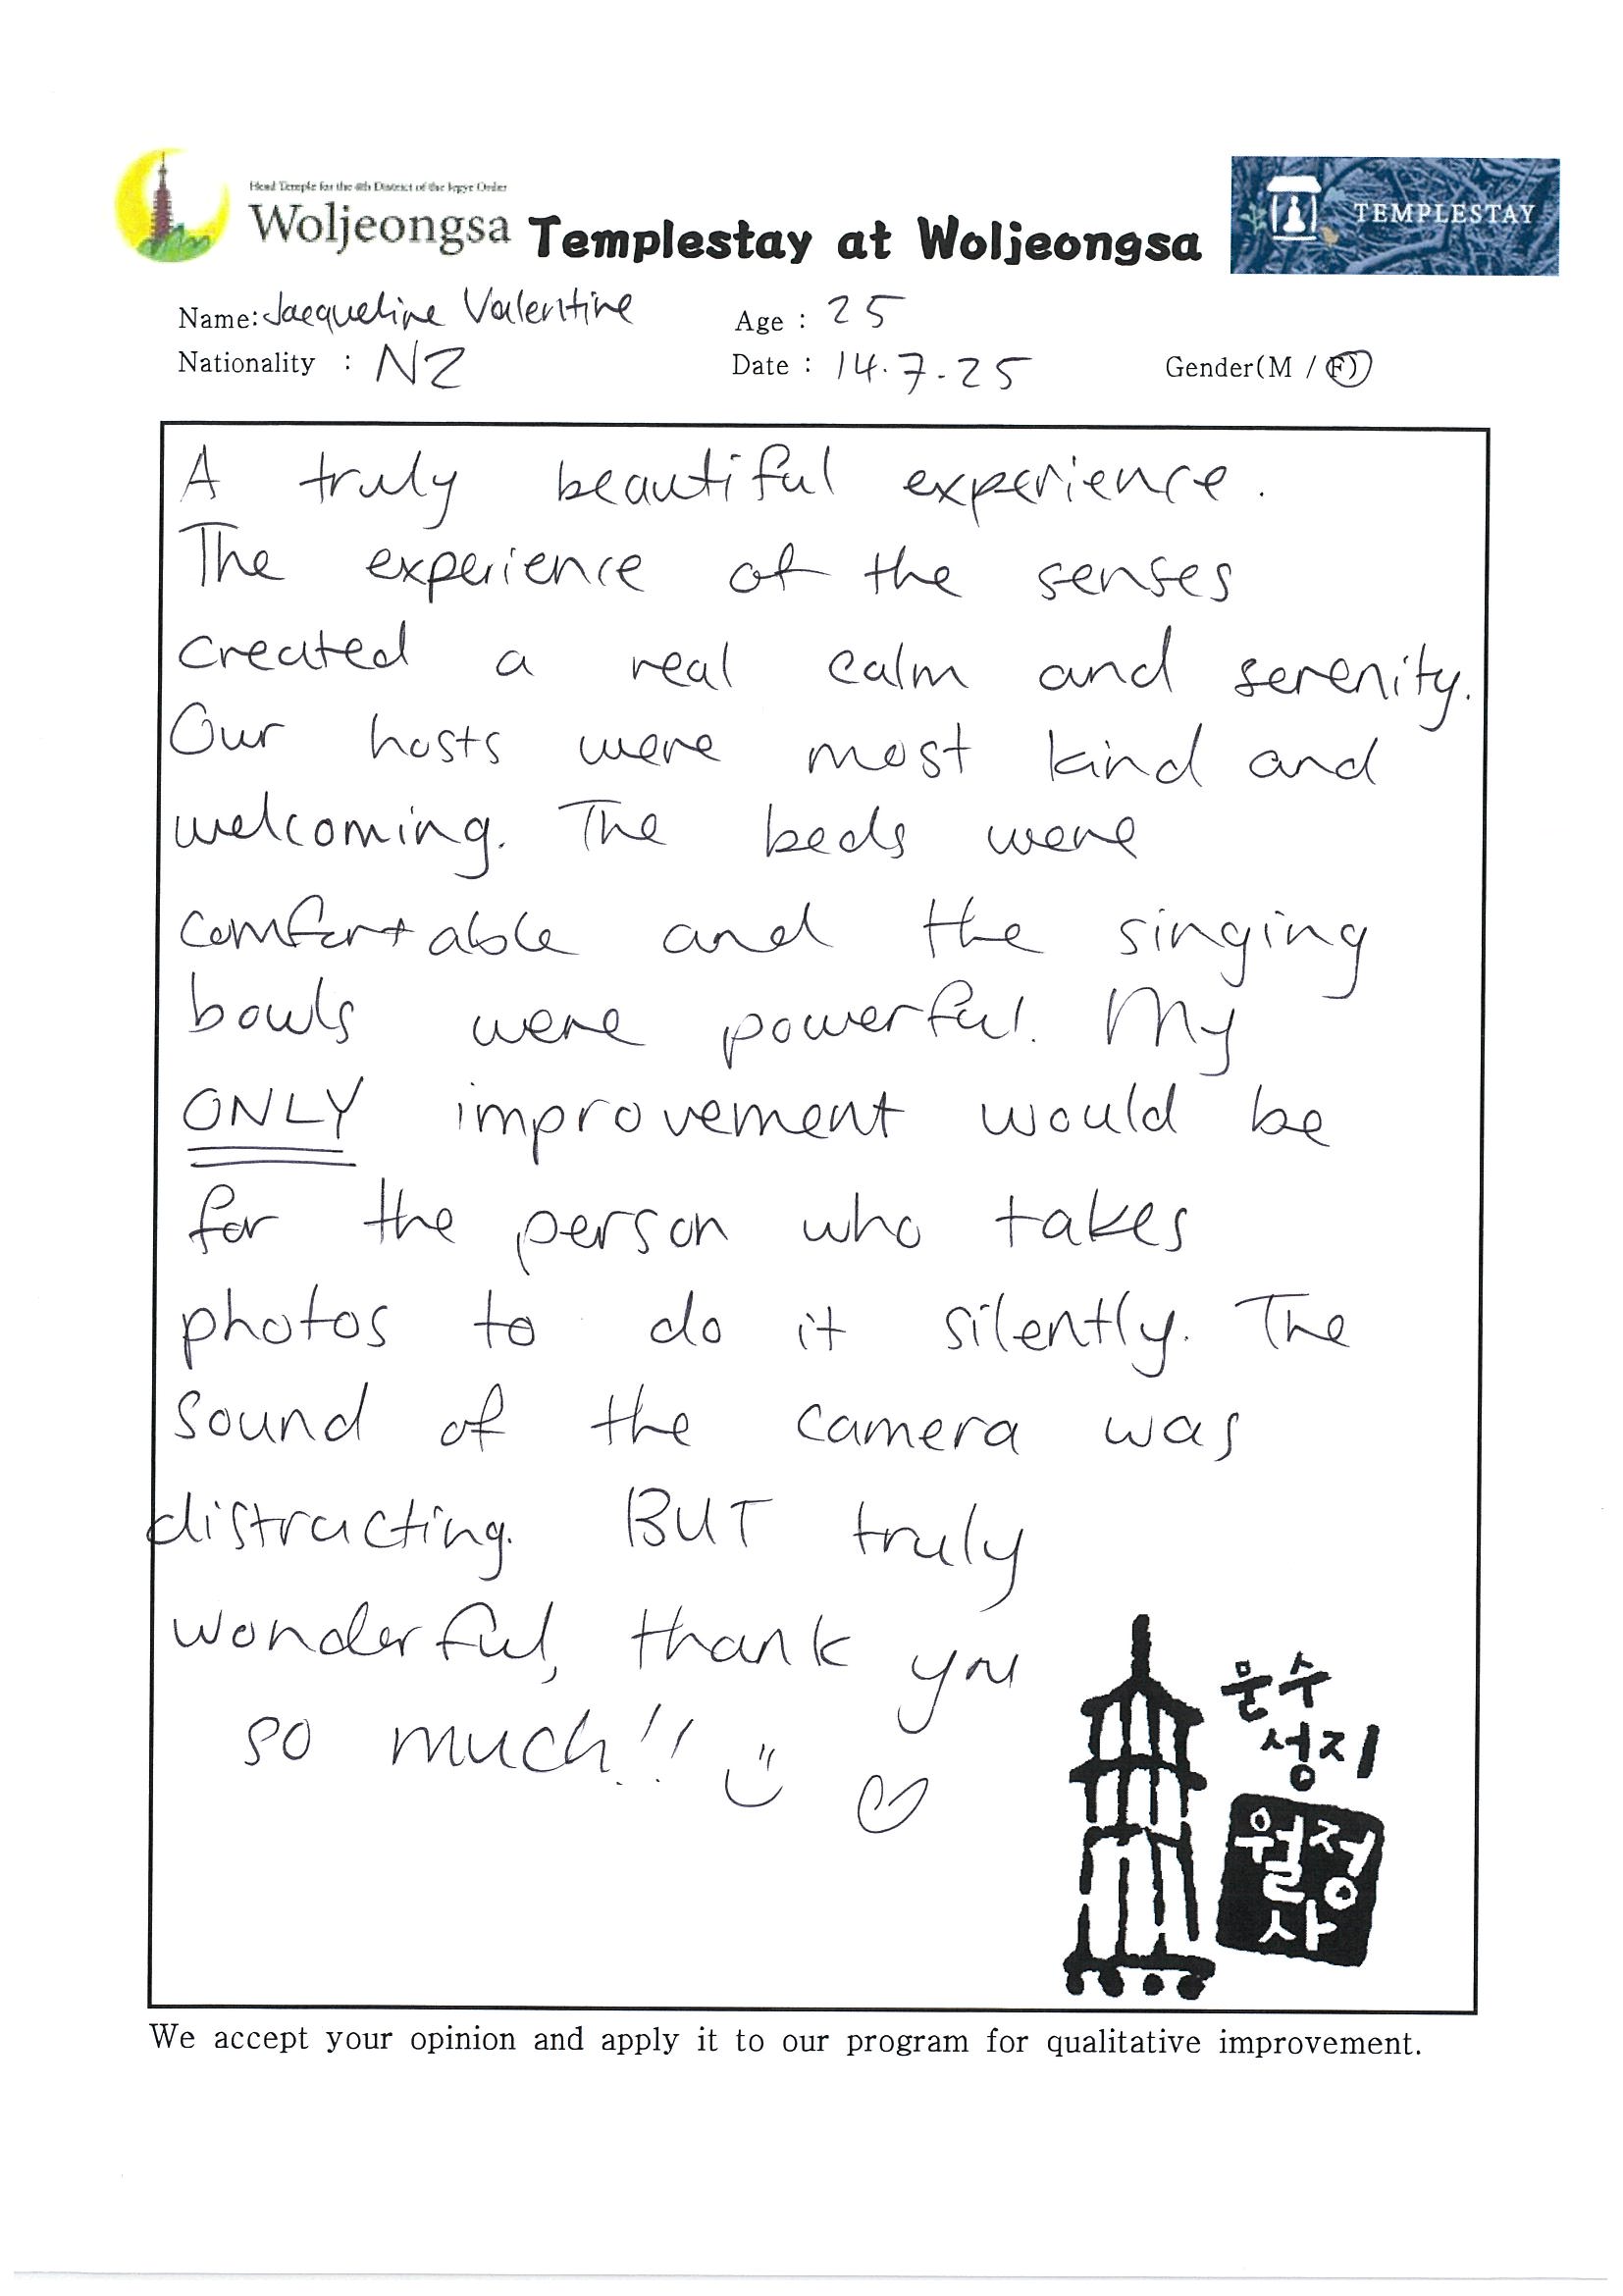 Head Temple for the 4th District of the Jogye Order
Woljeongsa
Templestay at Woljeongsa
TEMPLESTAY
Name: Jacqueline Valentine
Age : 25
Nationality : NZ
Date : 14.7.25
Gender(M / F)
A truly beautiful experience.
The experience of the senses
created a real calm and serenity.
Our hosts were most kind and
welcoming. The beds were
comfortable and the singing
bowls were powerful. My
ONLY improvement would be
for the person who takes
photos to do it silently. The
sound of the camera was
distracting. BUT truly
wonderful, thank you
so much!!
문수
성지
월정
사
We accept your opinion and apply it to our program for qualitative improvement.